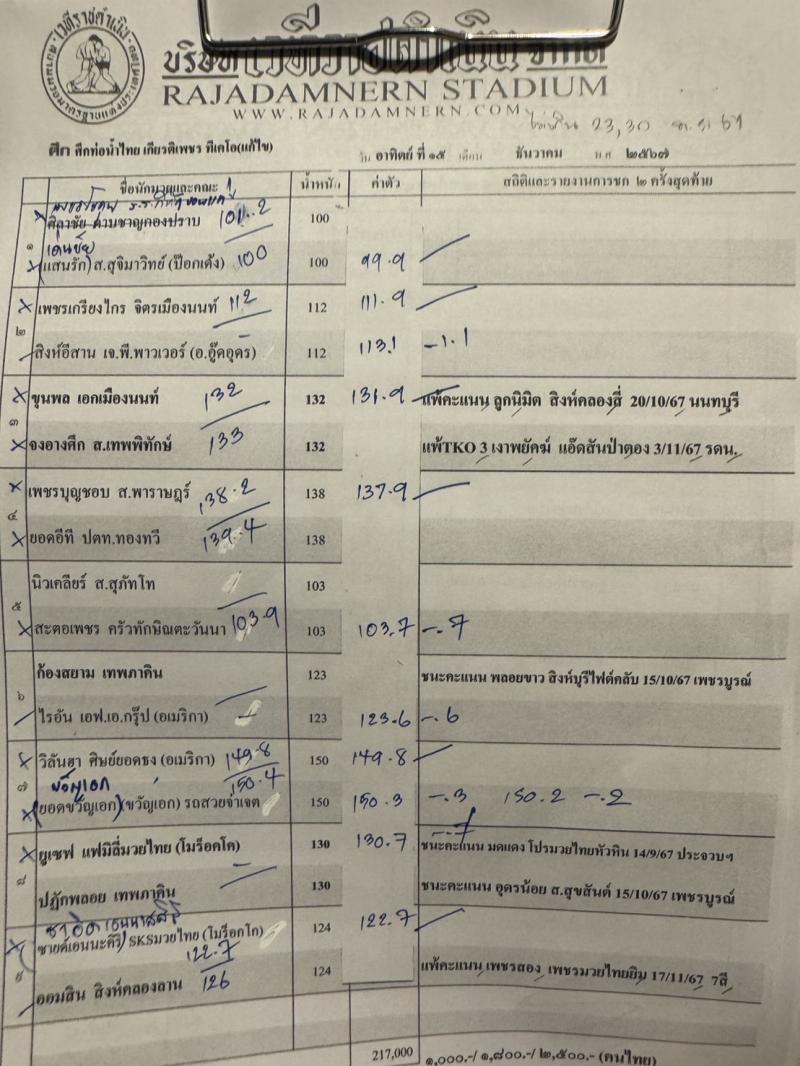 บริษัท เวทีราชดำเนิน จำกัด
RAJADAMNERN STADIUM
WWW.RAJADAMNERN.COM
23,30
ศึก ศึกท่อน้ำไทย เกียรติเพชร ทีเคโอ(แก้ไข) วัน อาทิตย์ ที่ ๑๕ เดือน ธันวาคม พ.ศ ๒๕๖๗
ชื่อนักมวยและคณะ น้ำหนัก ค่าตัว สถิติและรายงานการชก ๒ ครั้งสุดท้าย
ศิลาชัย ค่ายชาญกองปราบ 101.2 100
๑
เดนชัย
(แสนรัก) ส.สุจิมาวิทย์ (ป๊อกเด้ง) 100 100 99.9
เพชรเกรียงไกร จิตรเมืองนนท์ 112 112 111.9
๒
สิงห์อีสาน เจ.พี.พาวเวอร์ (อ.อู๊ดอุดร) 112 113.1 -1.1
ขุนพล เอกเมืองนนท์ 132 132 131.9 แพ้คะแนน ลูกนิมิต สิงห์คลองสี่ 20/10/67 นนทบุรี
๓
จงอางศึก ส.เทพพิทักษ์ 133 132 แพ้TKO 3 เงาพยัคฆ์ แอ๊ดสันป่าตอง 3/11/67 รดน.
เพชรบุญชอบ ส.พาราษฎร์ 138.2 138 137.9
๔
ยอดอีที ปตท.ทองทวี 139.4 138
นิวเคลียร์ ส.สุภัทโท 103
๕
สะตอเพชร ครัวทักษิณตะวันนา 103.9 103 103.7 -.7
ก้องสยาม เทพภาคิน 123 ชนะคะแนน พลอยขาว สิงห์บุรีไฟต์คลับ 15/10/67 เพชรบูรณ์
๖
ไรอัน เอฟ.เอ.กรุ๊ป (อเมริกา) 123 123.6 -.6
วิลันฮา ศิษย์ยอดธง (อเมริกา) 149.8 150 149.8
๗ ขวัญเอก 150.4
(ยอดขวัญเอก) (ขวัญเอก) รถสวยจำเจต 150 150.3 -.3 150.2 -.2
ยูเซฟ แฟมิลี่มวยไทย (โมร็อคโค) 130 130.7 -.7 ชนะคะแนน มดแดง โปรมวยไทยหัวหิน 14/9/67 ประจวบฯ
๘
ปฏักพลอย เทพภาคิน 130 ชนะคะแนน อุดรน้อย ส.สุขสันต์ 15/10/67 เพชรบูรณ์
ซายด์เอนนะคีรี) SKSมวยไทย (โมร็อกโก) 122.7 124 122.7
๙
ออมสิน สิงห์คลองลาน 126 124 แพ้คะแนน เพชรสอง เพชรมวยไทยยิม 17/11/67 7สี
217,000 ๑,๐๐๐.-/ ๑,๘๐๐.-/ ๒,๕๐๐.- (คนไทย)